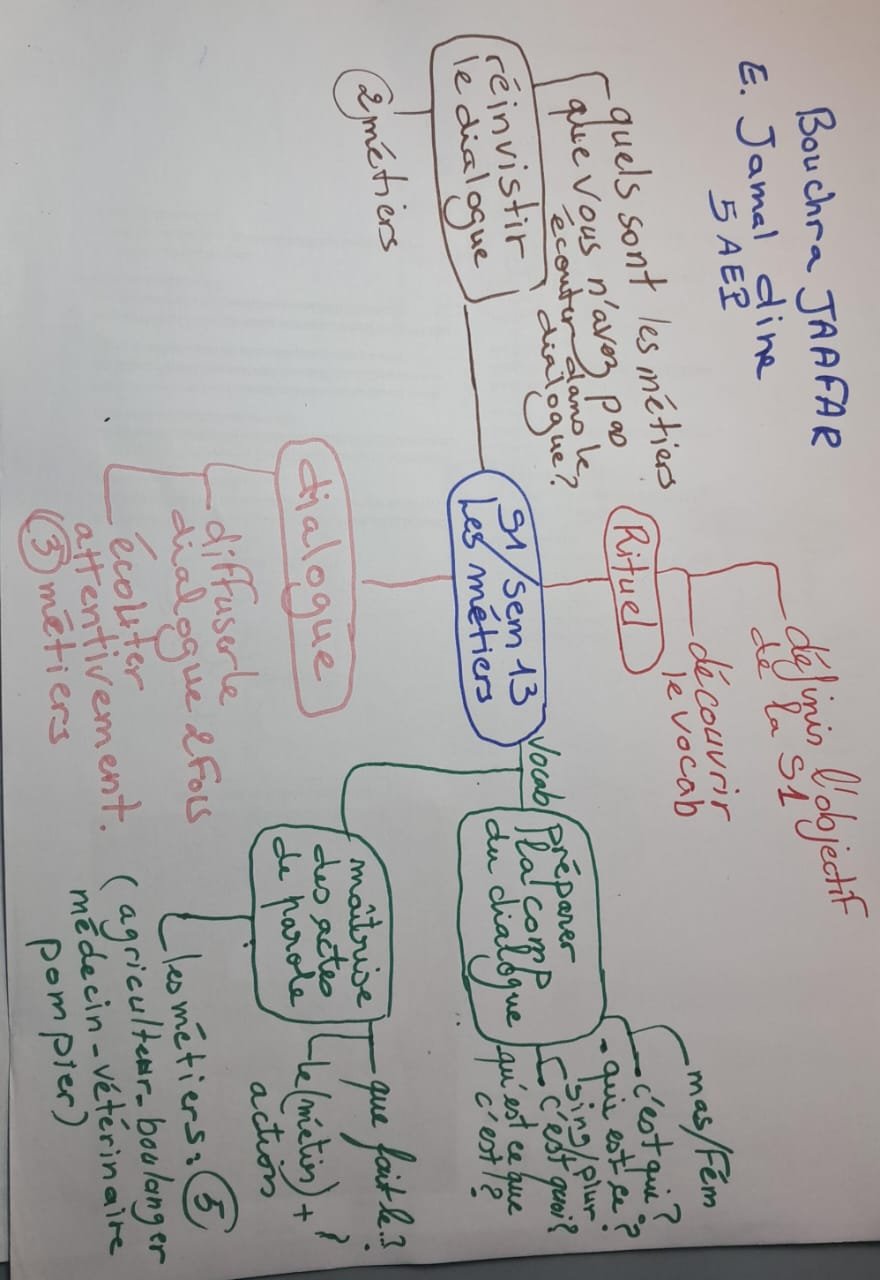 Bouchra JAAFAR
E. Jamal dine
5 AEP
quels sont les métiers
que vous n'avez pas
écouter dans le
dialogue?
réinvistir
le dialogue
2 métiers
S1/sem 13
Les métiers
Rituel
définir l'objectif
de la S1
découvrir
le vocab
dialogue
diffuser le
dialogue 2 fois
écouter
attentivement.
3 métiers
Vocab
préparer
la comp
du dialogue
mas/Fém
c'est qui?
- qui est-ce?
sing/plur
c'est quoi?
qu'est ce que
c'est?
maîtrise
des actes
de parole
que fait le..?
le (métier) +
action
les métiers: 5
(agriculteur-boulanger
médecin-vétérinaire
pompier)